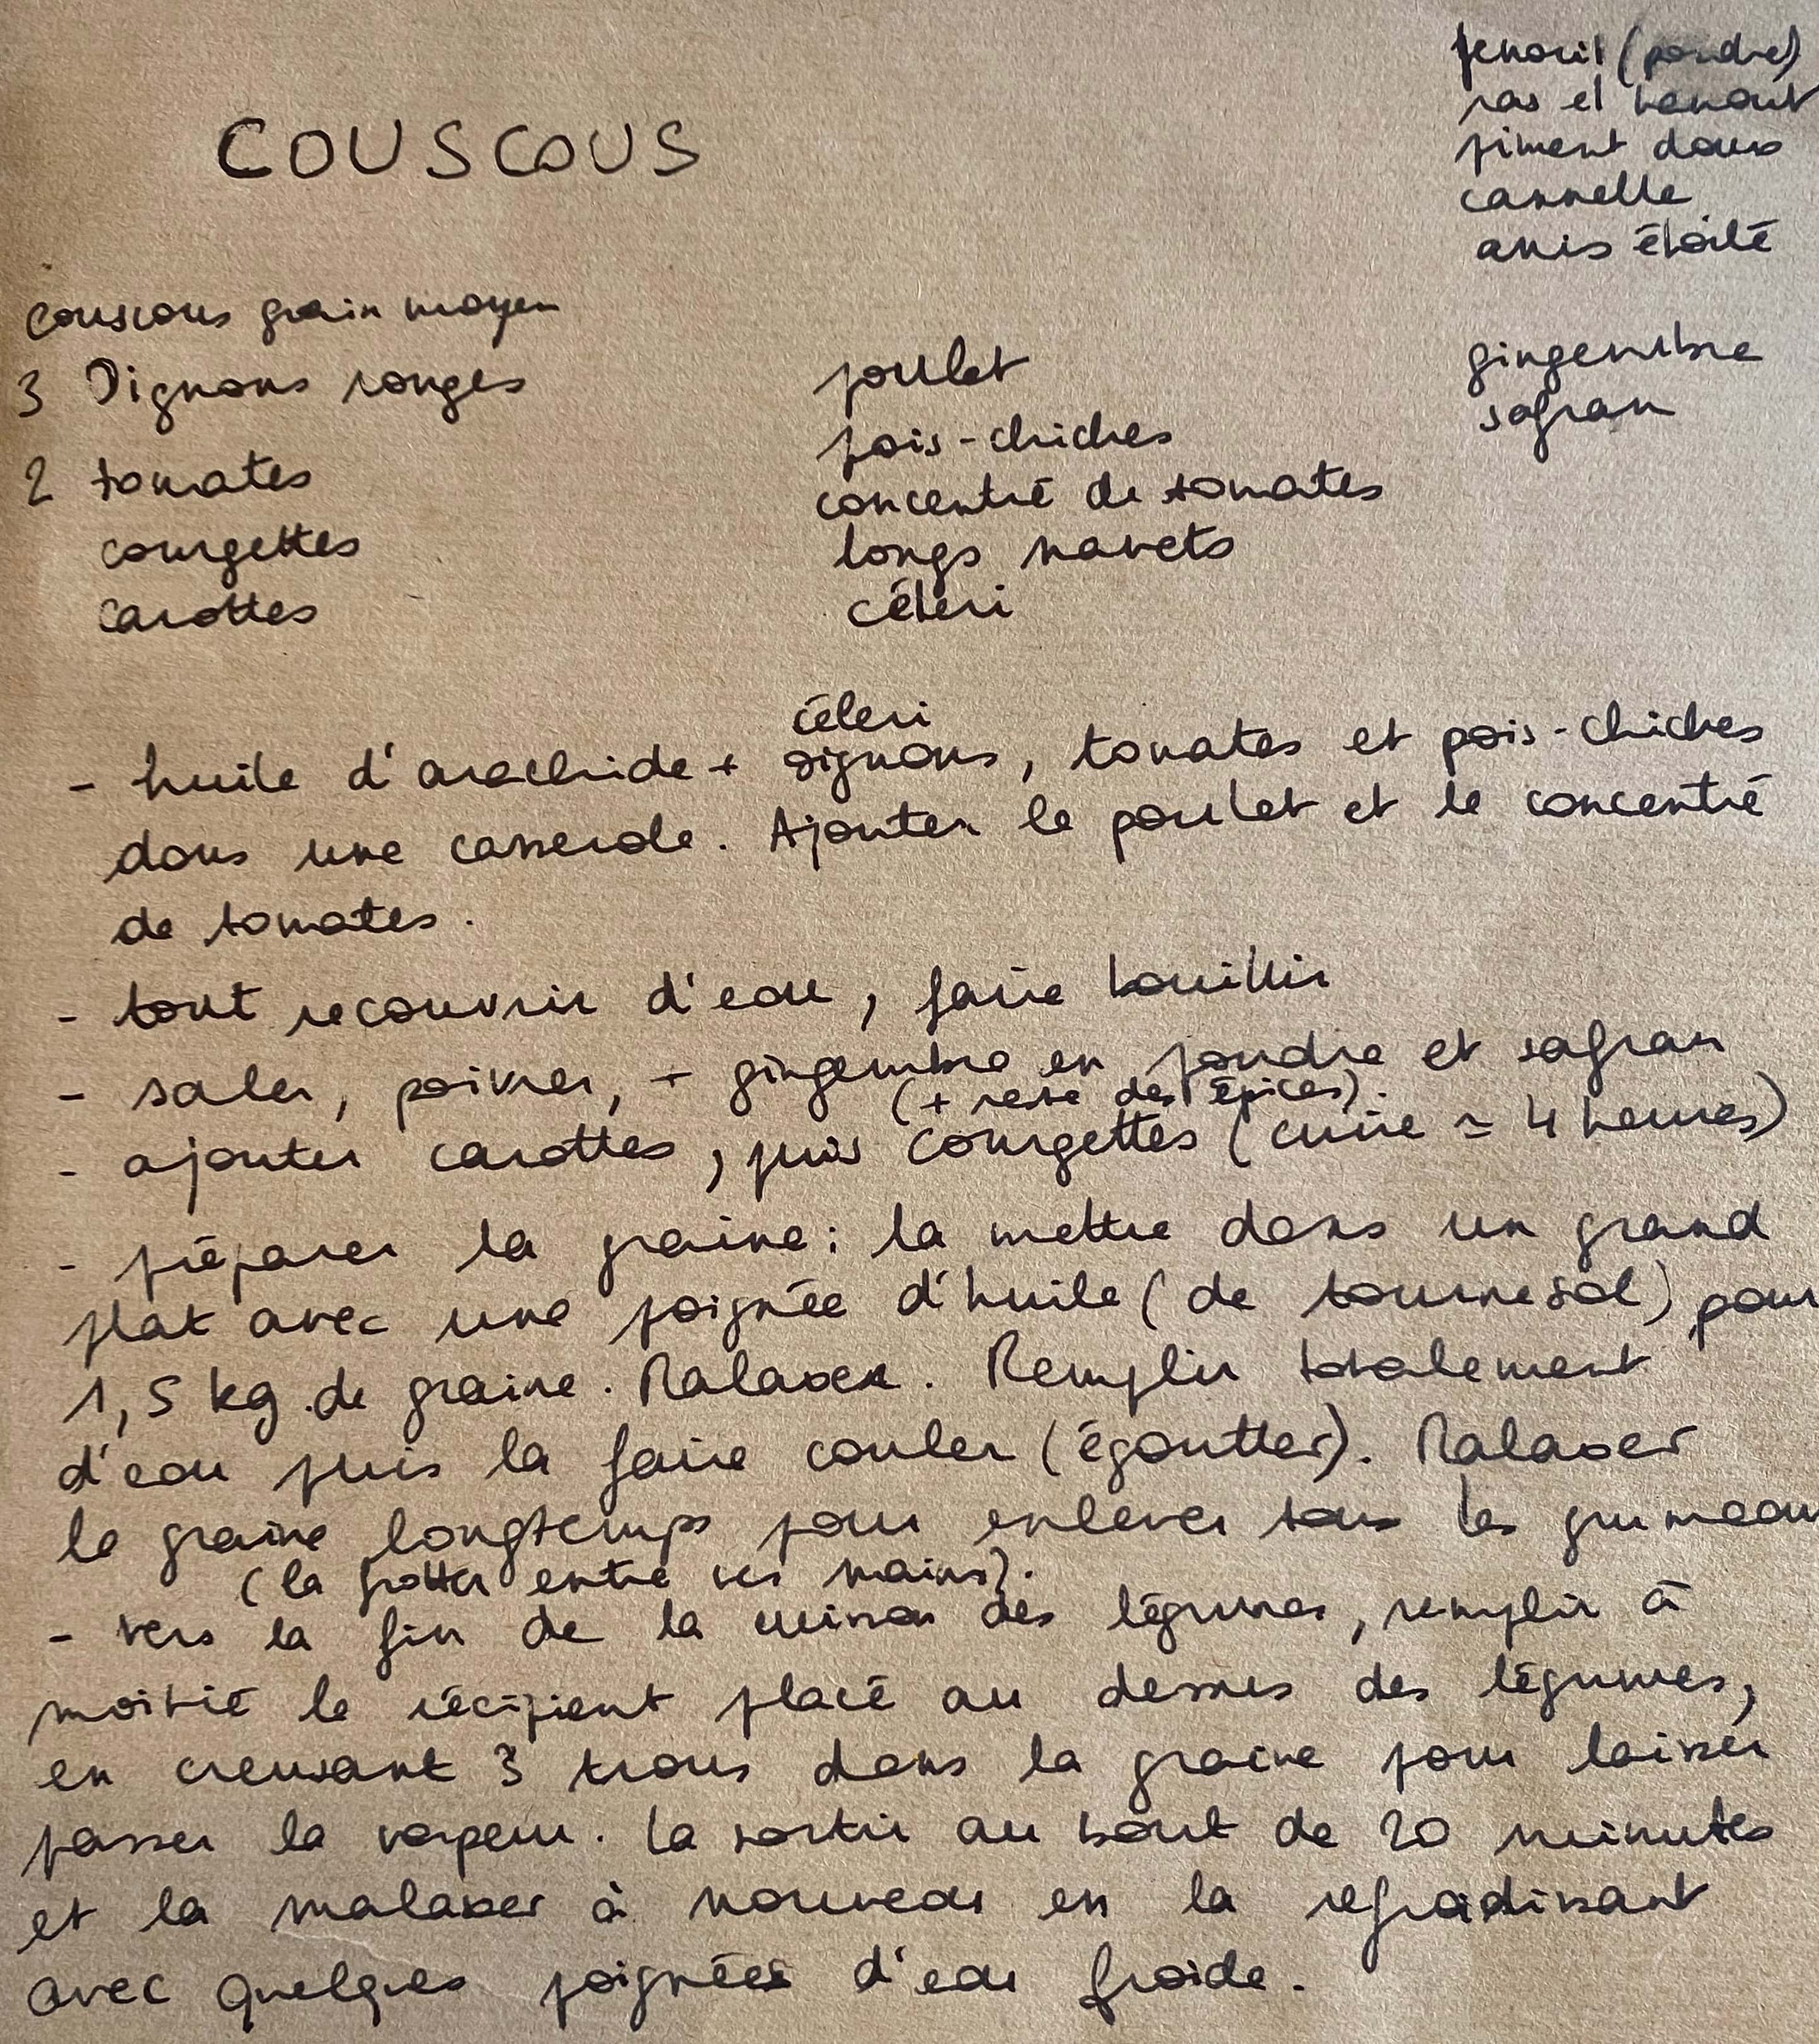 COUSCOUS
fenouil (poudre)
ras el hanout
piment doux
cannelle
anis étoilé
gingembre
safran
couscous grain moyen
3 Oignons rouges
2 tomates
courgettes
carottes
poulet
pois-chiches
concentré de tomates
longs navets
céleri
céleri
- huile d'arachide + oignons, tomates et pois-chiches
dans une casserole. Ajouter le poulet et le concentré
de tomates.
- tout recouvrir d'eau, faire bouillir
- saler, poivrer, + gingembre en poudre et safran
(+ reste des épices).
- ajouter carottes, puis courgettes (cuire ≃ 4 heures)
- préparer la graine : la mettre dans un grand
plat avec une poignée d'huile (de tournesol) pour
1,5 kg de graine. Malaxer. Remplir totalement
d'eau puis la faire couler (égoutter). Malaxer
la graine longtemps pour enlever tous les grumeaux
(la frotter entre ses mains).
- vers la fin de la cuisson des légumes, remplir à
moitié le récipient placé au dessus des légumes,
en creusant 3 trous dans la graine pour laisser
passer la vapeur. La sortir au bout de 20 minutes
et la malaxer à nouveau en la refroidissant
avec quelques poignées d'eau froide.